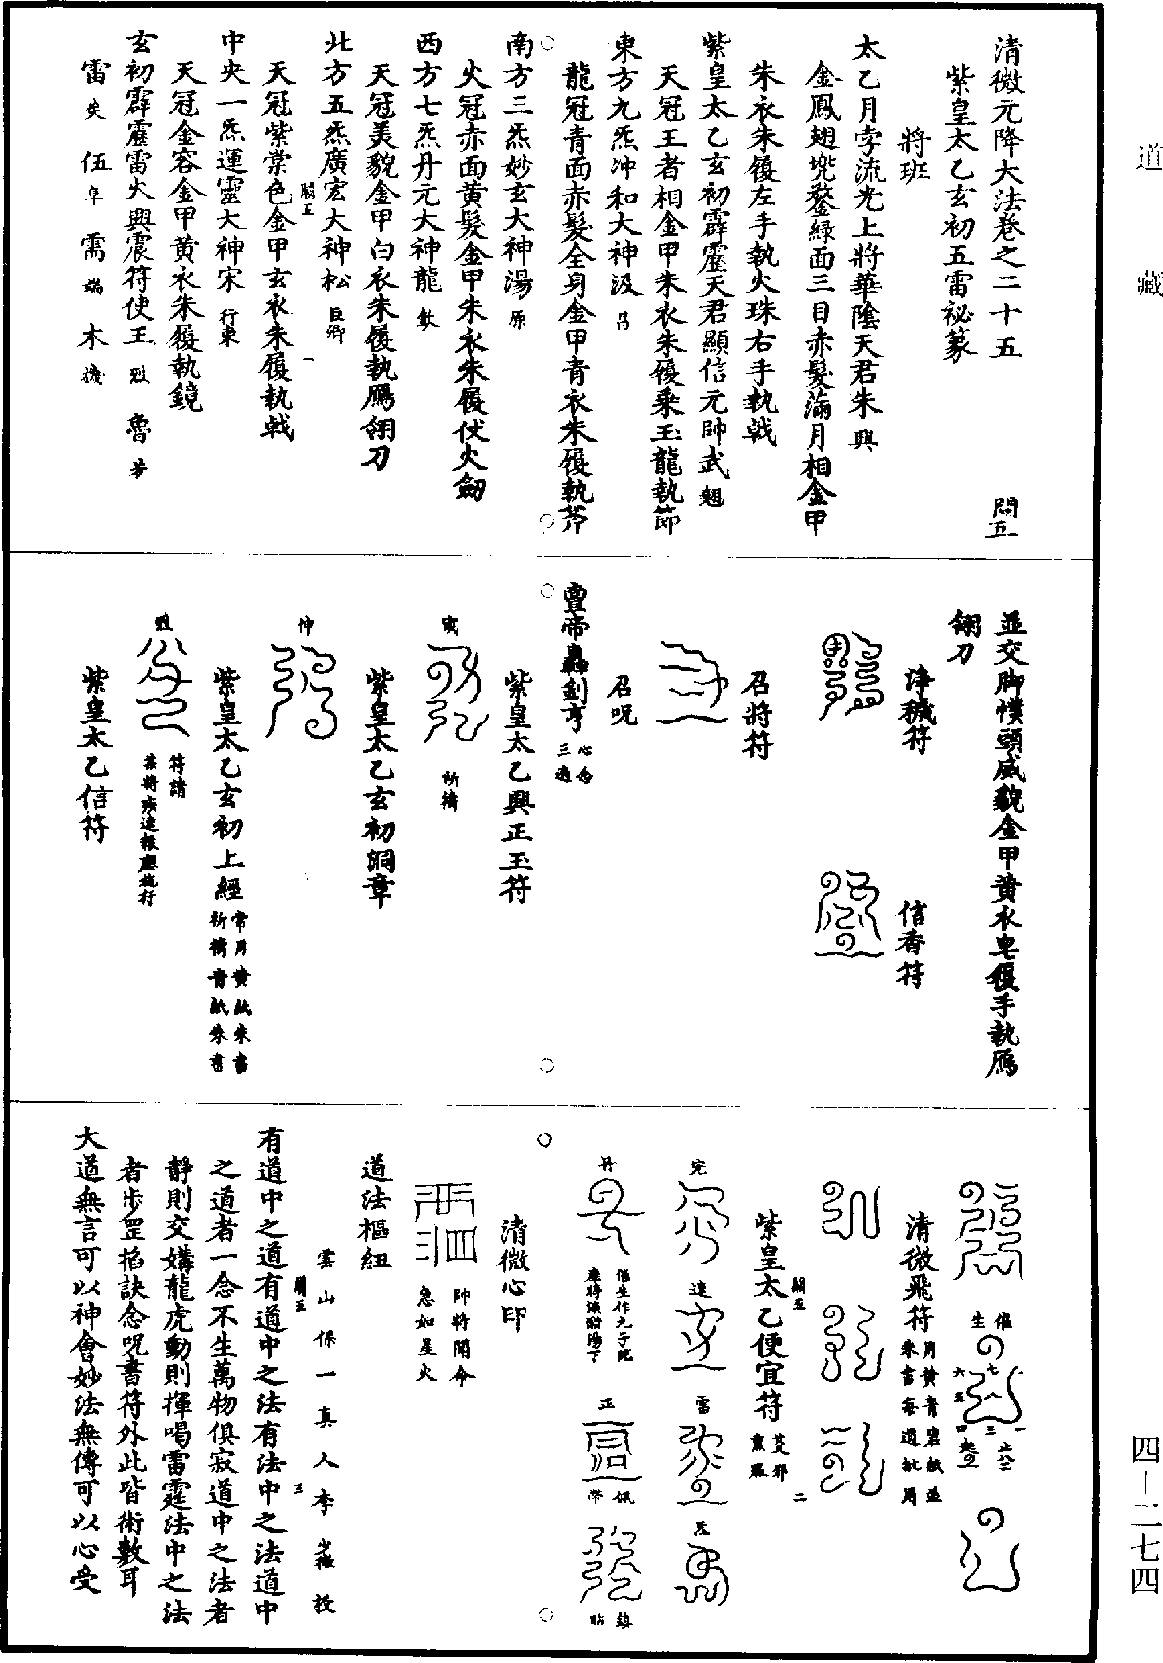 道藏
清微元降大法卷之二十五
紫皇太乙玄初五雷祕篆
將班
太乙月孛流光上將華陰天君朱興
金鳳翅兜鍪綠面三目赤髮滿月相金甲
朱衣朱履左手執火珠右手執戟
紫皇太乙玄初霹靂天君顯信元帥武翹
天冠王者相金甲朱衣朱履乘玉龍執節
東方九炁冲和大神汲
龍冠青面赤髮全身金甲青衣朱履執斧
南方三炁妙玄大神湯
火冠赤面黃髮金甲朱衣朱履伏火劒
西方七炁丹元大神龍
天冠美貌金甲白衣朱履執鴈翎刀
北方五炁廣宏大神松巨卿
天冠紫棠色金甲玄衣朱履執戟
中央一炁運靈大神宋行東
天冠金容金甲黃衣朱履執鏡
玄初霹靂雷火興震符使王烈 魯
雷 伍 霭 木
並交脚幞頭威貌金甲黃衣皂履手執鴈
翎刀
淨穢符
信香符
召將符
召呪
心念三遍
紫皇太乙興正玉符
祈禱
紫皇太乙玄初洞章
紫皇太乙玄初上經常用黃紙朱書祈禱青紙朱書
符請
紫皇太乙信符
催生
清微飛符
紫皇太乙便宜符
清微心印
帥將聞令
急如星火
道法樞紐
雲山保一真人李少微授
有道中之道有道中之法有法中之法道中
之道者一念不生萬物俱寂道中之法者
靜則交媾龍虎動則揮喝雷霆法中之法
者步罡掐訣念呪書符外此皆術數耳
大道無言可以神會妙法無傳可以心受
四—二七四